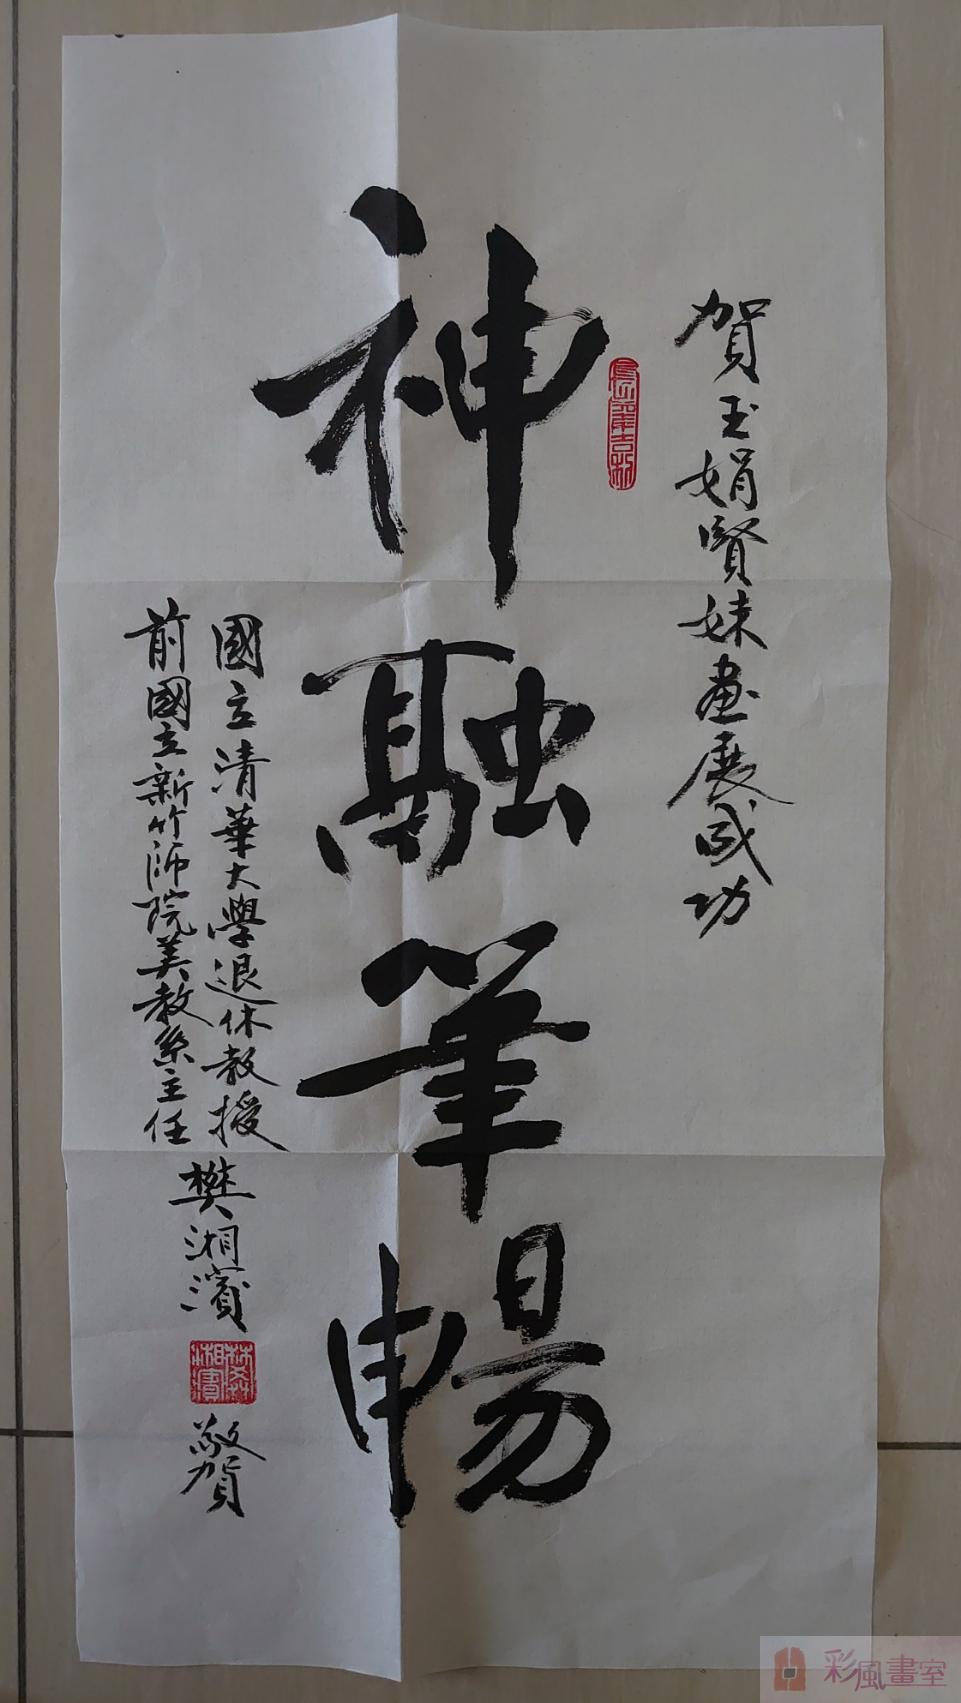 賀玉娟賢妹畫展成功
神融筆暢
國立清華大學退休教授
前國立新竹師院美教系主任
樊湘濱
敬賀
彩風畫室